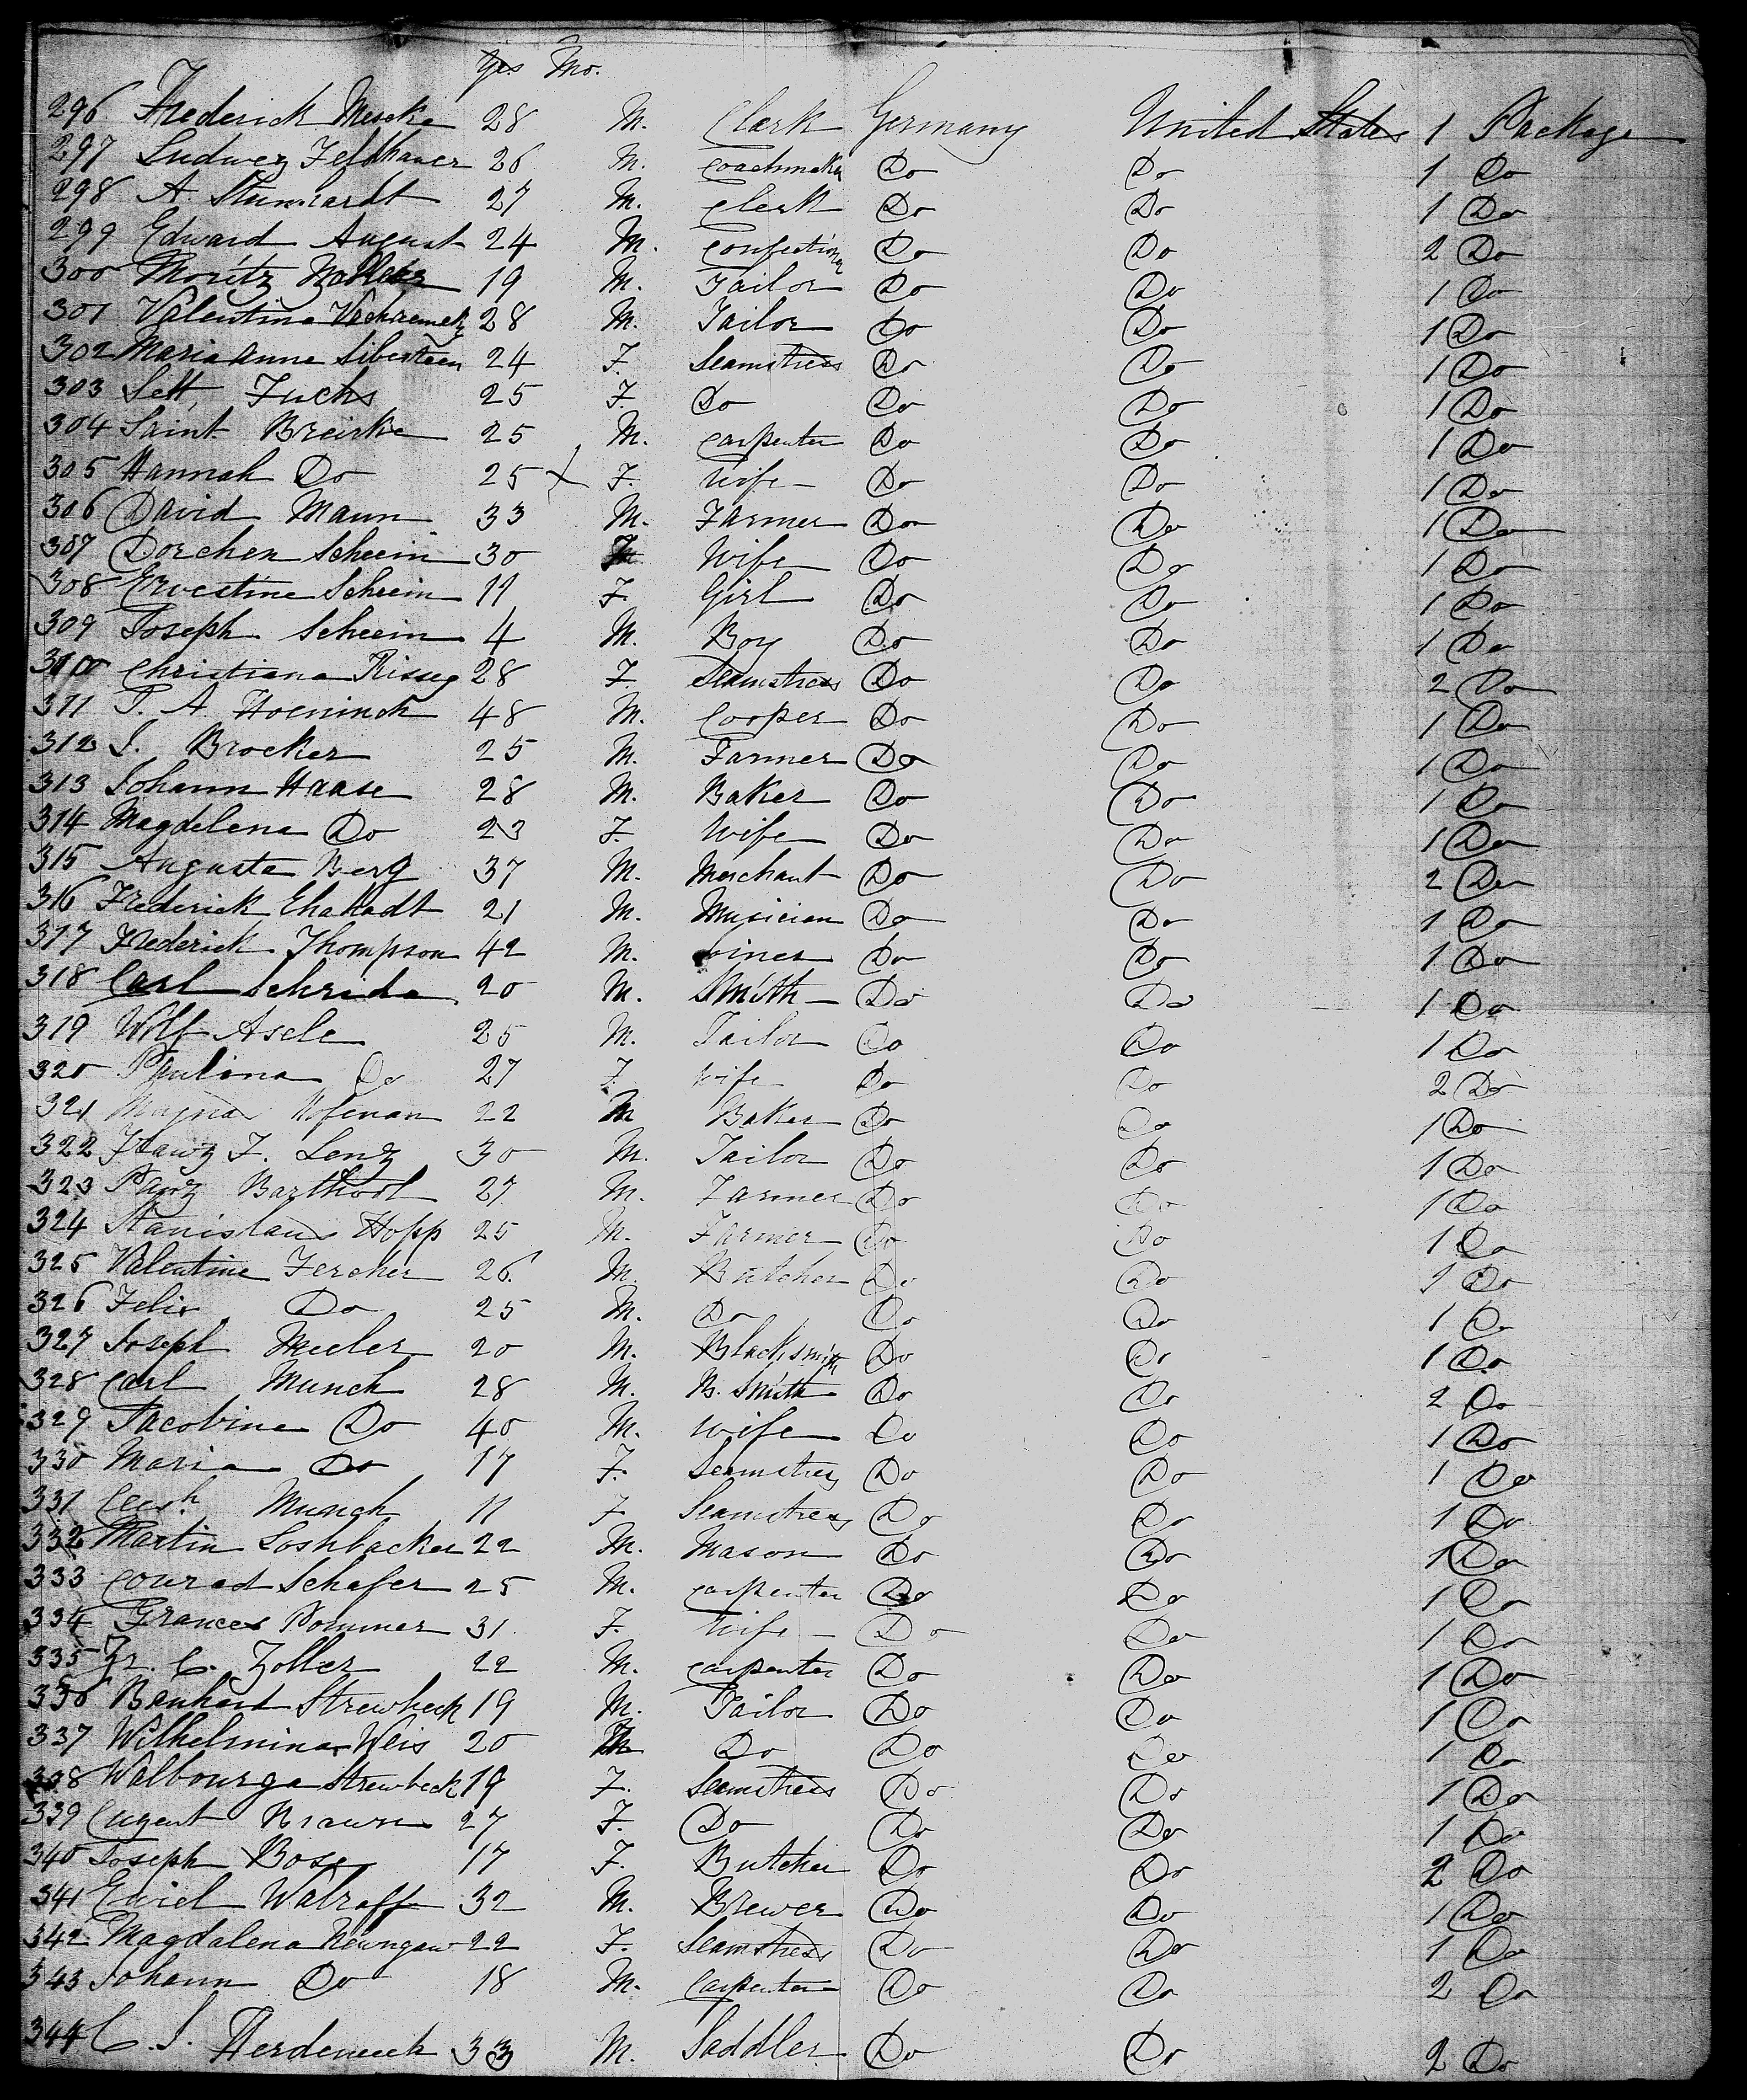 Yrs Mo.
296 Frederick Mescke 28 M. Clerk Germany United States 1 Package
297 Ludweg Feldhauer 26 M. Coachmaker Do Do 1 Do
298 A. Stunhardt 27 M. Clerk Do Do 1 Do
299 Edward August 24 M. Confectioner Do Do 2 Do
300 Moritz 19 M. Tailor Do Do 1 Do
301 Valentine 28 M. Tailor Do Do 1 Do
302 Maria Anne Liberteen 24 F. Seamstress Do Do 1 Do
303 Sett Fuchs 25 F. Do Do Do 1 Do
304 Saint Breirke 25 M. Carpenter Do Do 1 Do
305 Hannah Do 25 X F. Wife Do Do 1 Do
306 David Maun 33 M. Farmer Do Do 1 Do
307 Dorchen Scheein 30 Wife Do Do 1 Do
308 Ervestine Scheein 11 F. Girl Do Do 1 Do
309 Joseph Scheein 4 M. Boy Do Do 1 Do
310 Christiana Risseg 28 F. Seamstress Do Do 2 Do
311 P. A. Hoeninch 48 M. Cooper Do Do 1 Do
312 J. Brocker 25 M. Farmer Do Do 1 Do
313 Johann Haase 28 M. Baker Do Do 1 Do
314 Magdelena Do 23 F. Wife Do Do 1 Do
315 Auguste Berg 37 M. Merchant Do Do 2 Do
316 Frederick Ehahadt 21 M. Musician Do Do 1 Do
317 Frederick Thompson 42 M. Joiner Do Do 1 Do
318 Carl Schrida 20 M. Smith Do Do 1 Do
319 Wolf Asele 25 M. Tailor Do Do 1 Do
320 Paulina Do 27 F. Wife Do Do 2 Do
321 Hofeman 22 M Baker Do Do 1 Do
322 Franz F. Lenz 30 M. Tailor Do Do 1 Do
323 Panz Barthorl 27 M. Farmer Do Do 1 Do
324 Stanislaus Hopp 25 M. Farmer Do Do 1 Do
325 Valentine Fercher 26 M. Butcher Do Do 1 Do
326 Felix Do 25 M. Do Do Do 1 Do
327 Joseph Meeler 20 M. Blacksmith Do Do 1 Do
328 Carl Munch 28 M. B. Smith Do Do 2 Do
329 Jacobine Do 40 M. Wife Do Do 1 Do
330 Maria Do 17 F. Seamstress Do Do 1 Do
331 Munch 11 F Seamstress Do Do 1 Do
332 Martin Loshbacker 22 M. Mason Do Do 1 Do
333 Conrad Schafer 25 M. Carpenter Do Do 1 Do
334 Frances Pommer 31 F. Wife Do Do 1 Do
335 Fr. C. Zoller 22 M. Carpenter Do Do 1 Do
336 Banhart Strewbeck 19 M. Tailor Do Do 1 Do
337 Wilhelmina Weis 20 Do Do Do 1 Do
338 Walbourga Strewbeck 19 F. Seamstress Do Do 1 Do
339 Cugent Brawn 27 F. Do Do Do 1 Do
340 Joseph Bose 17 F. Butcher Do Do 2 Do
341 Emiel Walraff 32 M. Brewer Do Do 1 Do
342 Magdalena Newngaw 22 F. Seamstress Do Do 1 Do
343 Johann Do 18 M. Carpenter Do Do 2 Do
344 C. J. Herdeneeck 33 M. Saddler Do Do 2 Do